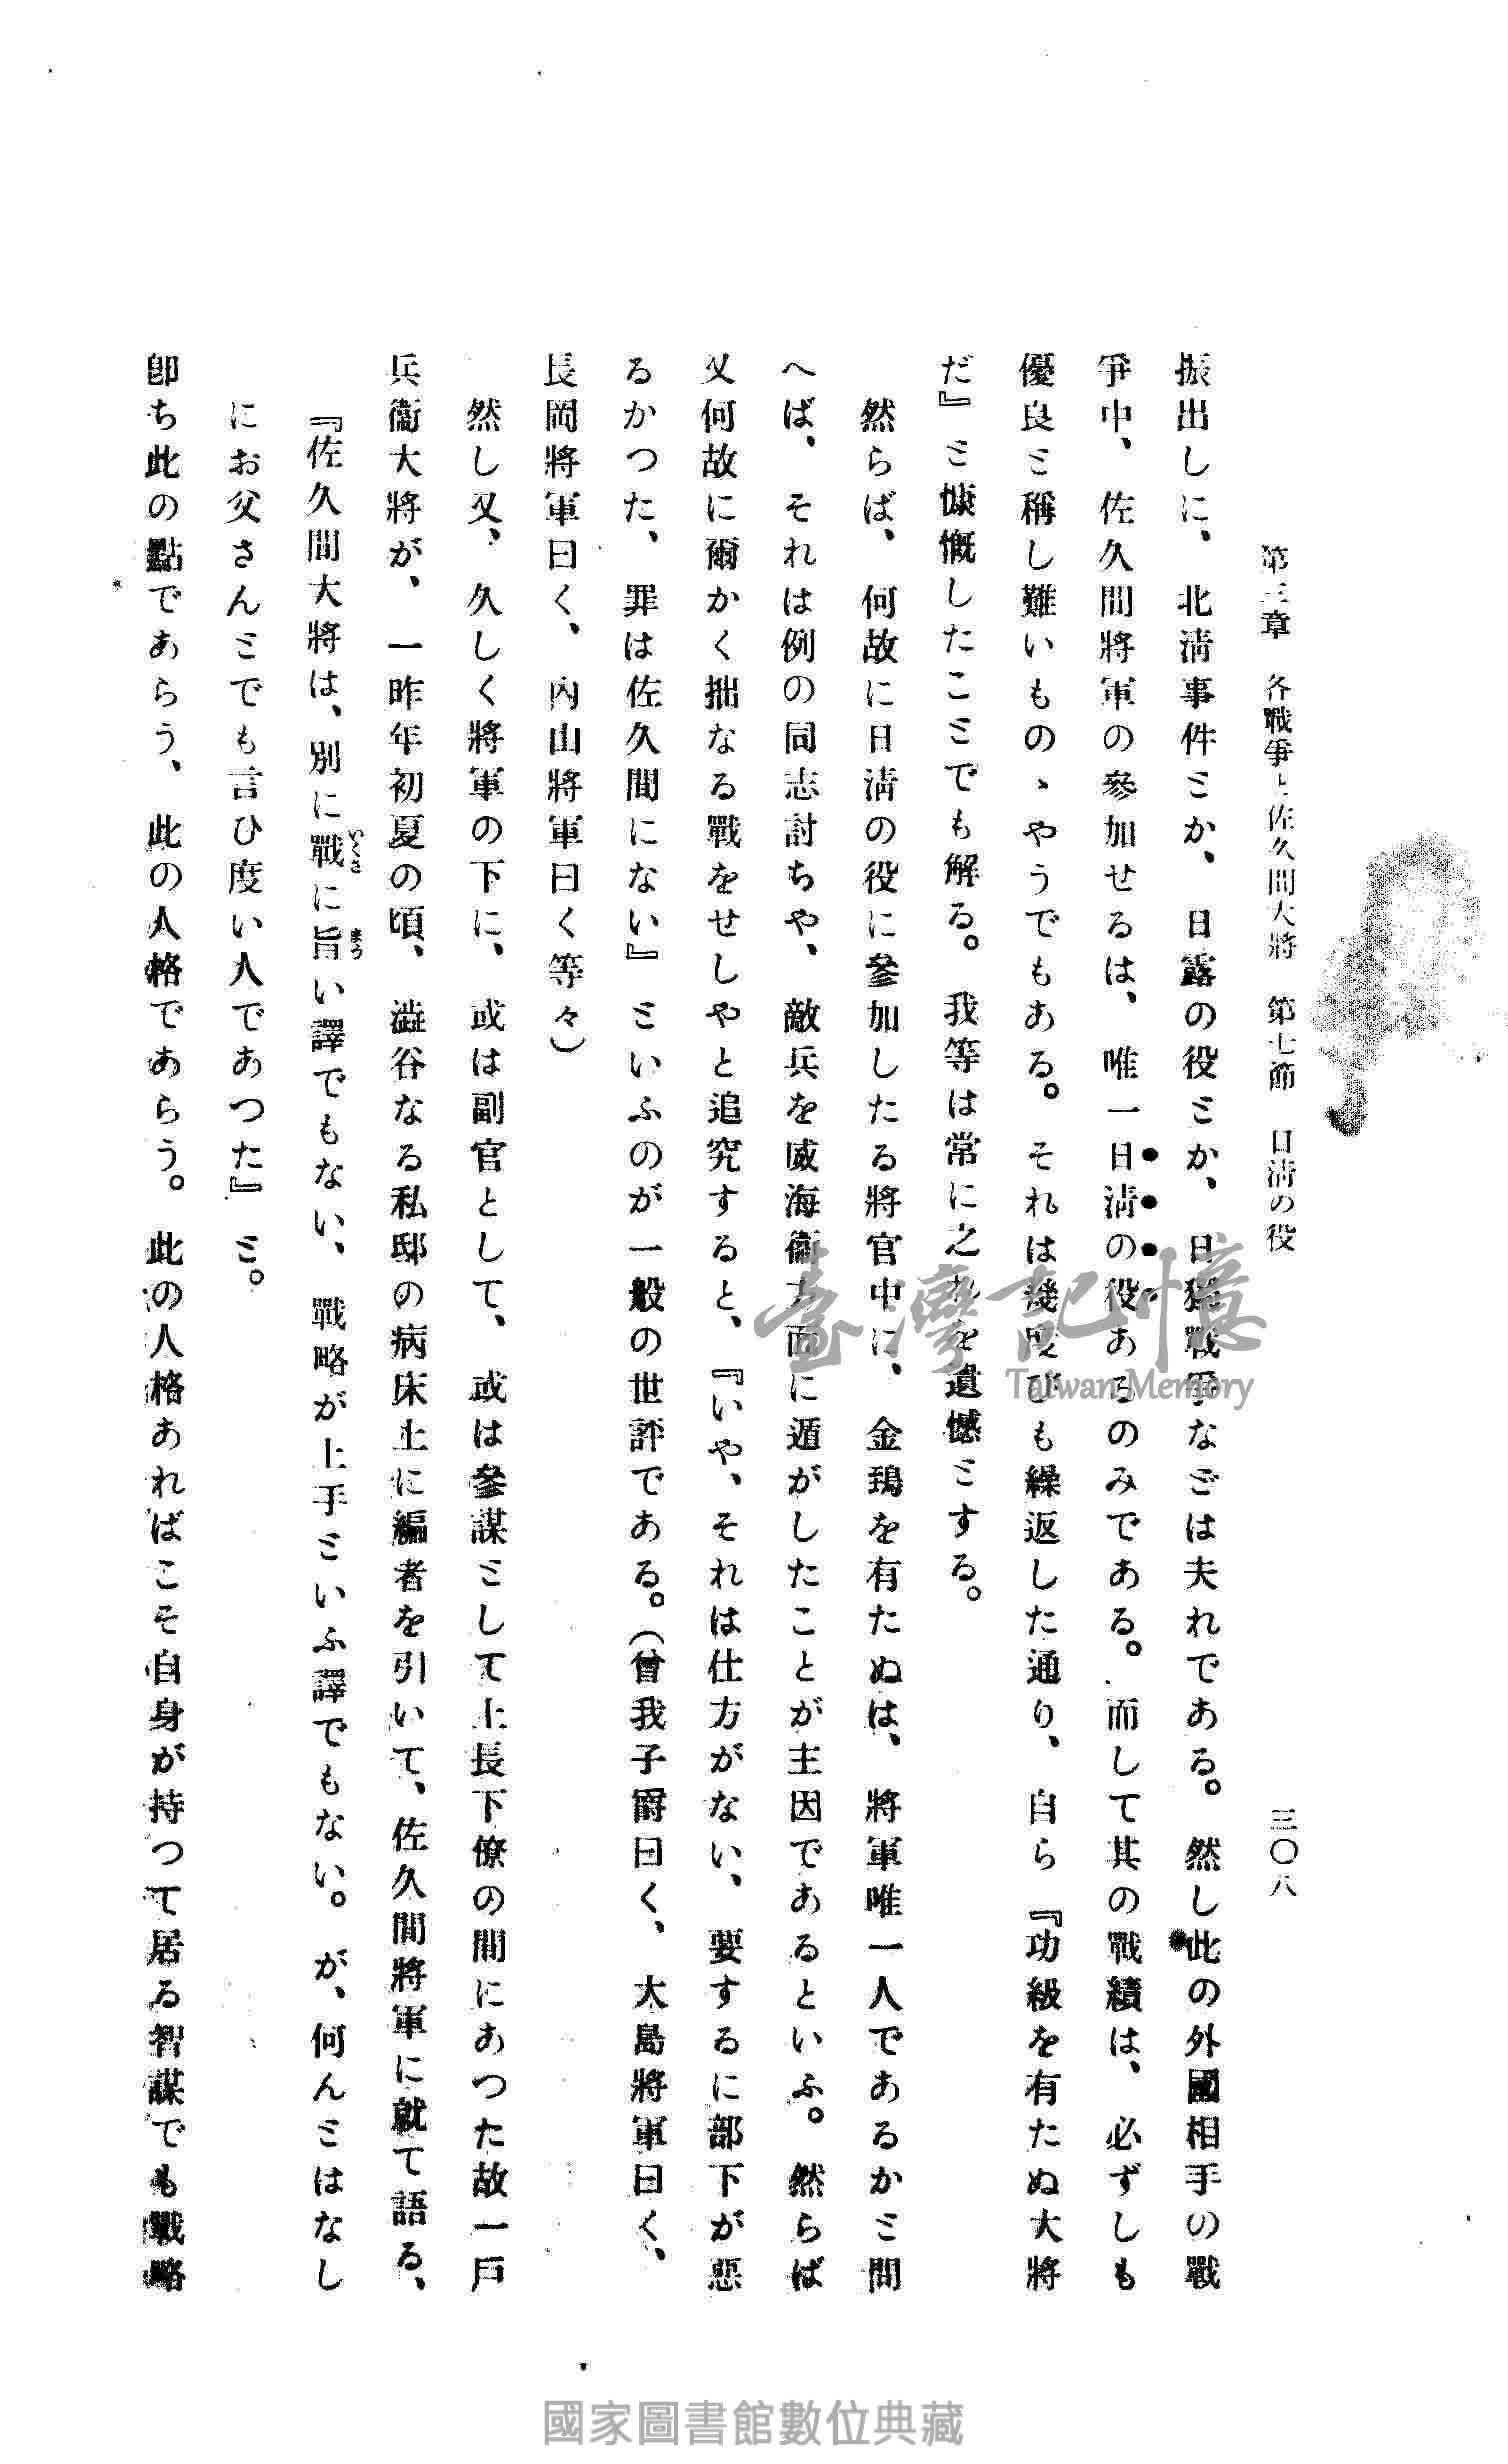 第三章　各戰爭と佐久間大將　第七節　日淸の役
三〇八
振出しに、北淸事件ミか、日露の役ミか、日獨戰爭なごは夫れである。然し此の外國相手の戰
爭中、佐久間將軍の參加せるは、唯一日淸の役あるのみである。而して其の戰績は、必ずしも
優良ミ稱し難いものゝやうでもある。それは幾度びも繰返した通り、自ら『功級を有たぬ大將
だ』ミ慷慨したこミでも解る。我等は常に之れを遺憾ミする。
然らば、何故に日淸の役に參加したる將官中に、金鵄を有たぬは、將軍唯一人であるかミ問
へば、それは例の同志討ちや、敵兵を威海衞方面に遁がしたことが主因であるといふ。然らば
又何故に爾かく拙なる戰をせしやと追究すると、『いや、それは仕方がない、要するに部下が惡
るかつた、罪は佐久間にない』ミいふのが一般の世評である。（曾我子爵曰く、大島將軍曰く、
長岡將軍曰く、內山將軍曰く等々）
然し又、久しく將軍の下に、或は副官として、或は參謀ミして上長下僚の間にあつた故一戶
兵衞大將が、一昨年初夏の頃、澁谷なる私邸の病床上に編者を引いて、佐久間將軍に就て語る、
『佐久間大將は、別に戰いくさに旨まうい譯でもない、戰略が上手ミいふ譯でもない。が、何んミはなし
にお父さんミでも言ひ度い人であつた』ミ。
卽ち此の點であらう、此の人格であらう。此の人格あればこそ自身が持つて居る智謀でも戰略
臺灣記憶
Taiwan Memory
國家圖書館數位典藏